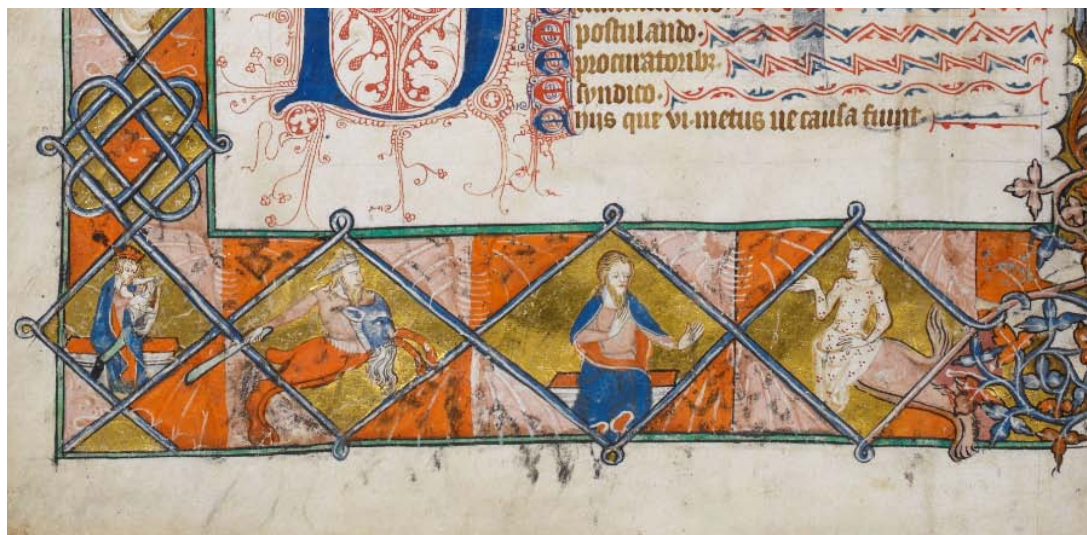 E postulando.
E procuratoribꝫ.
E syndico.
E hijs que vi.metus ue causa fiunt.